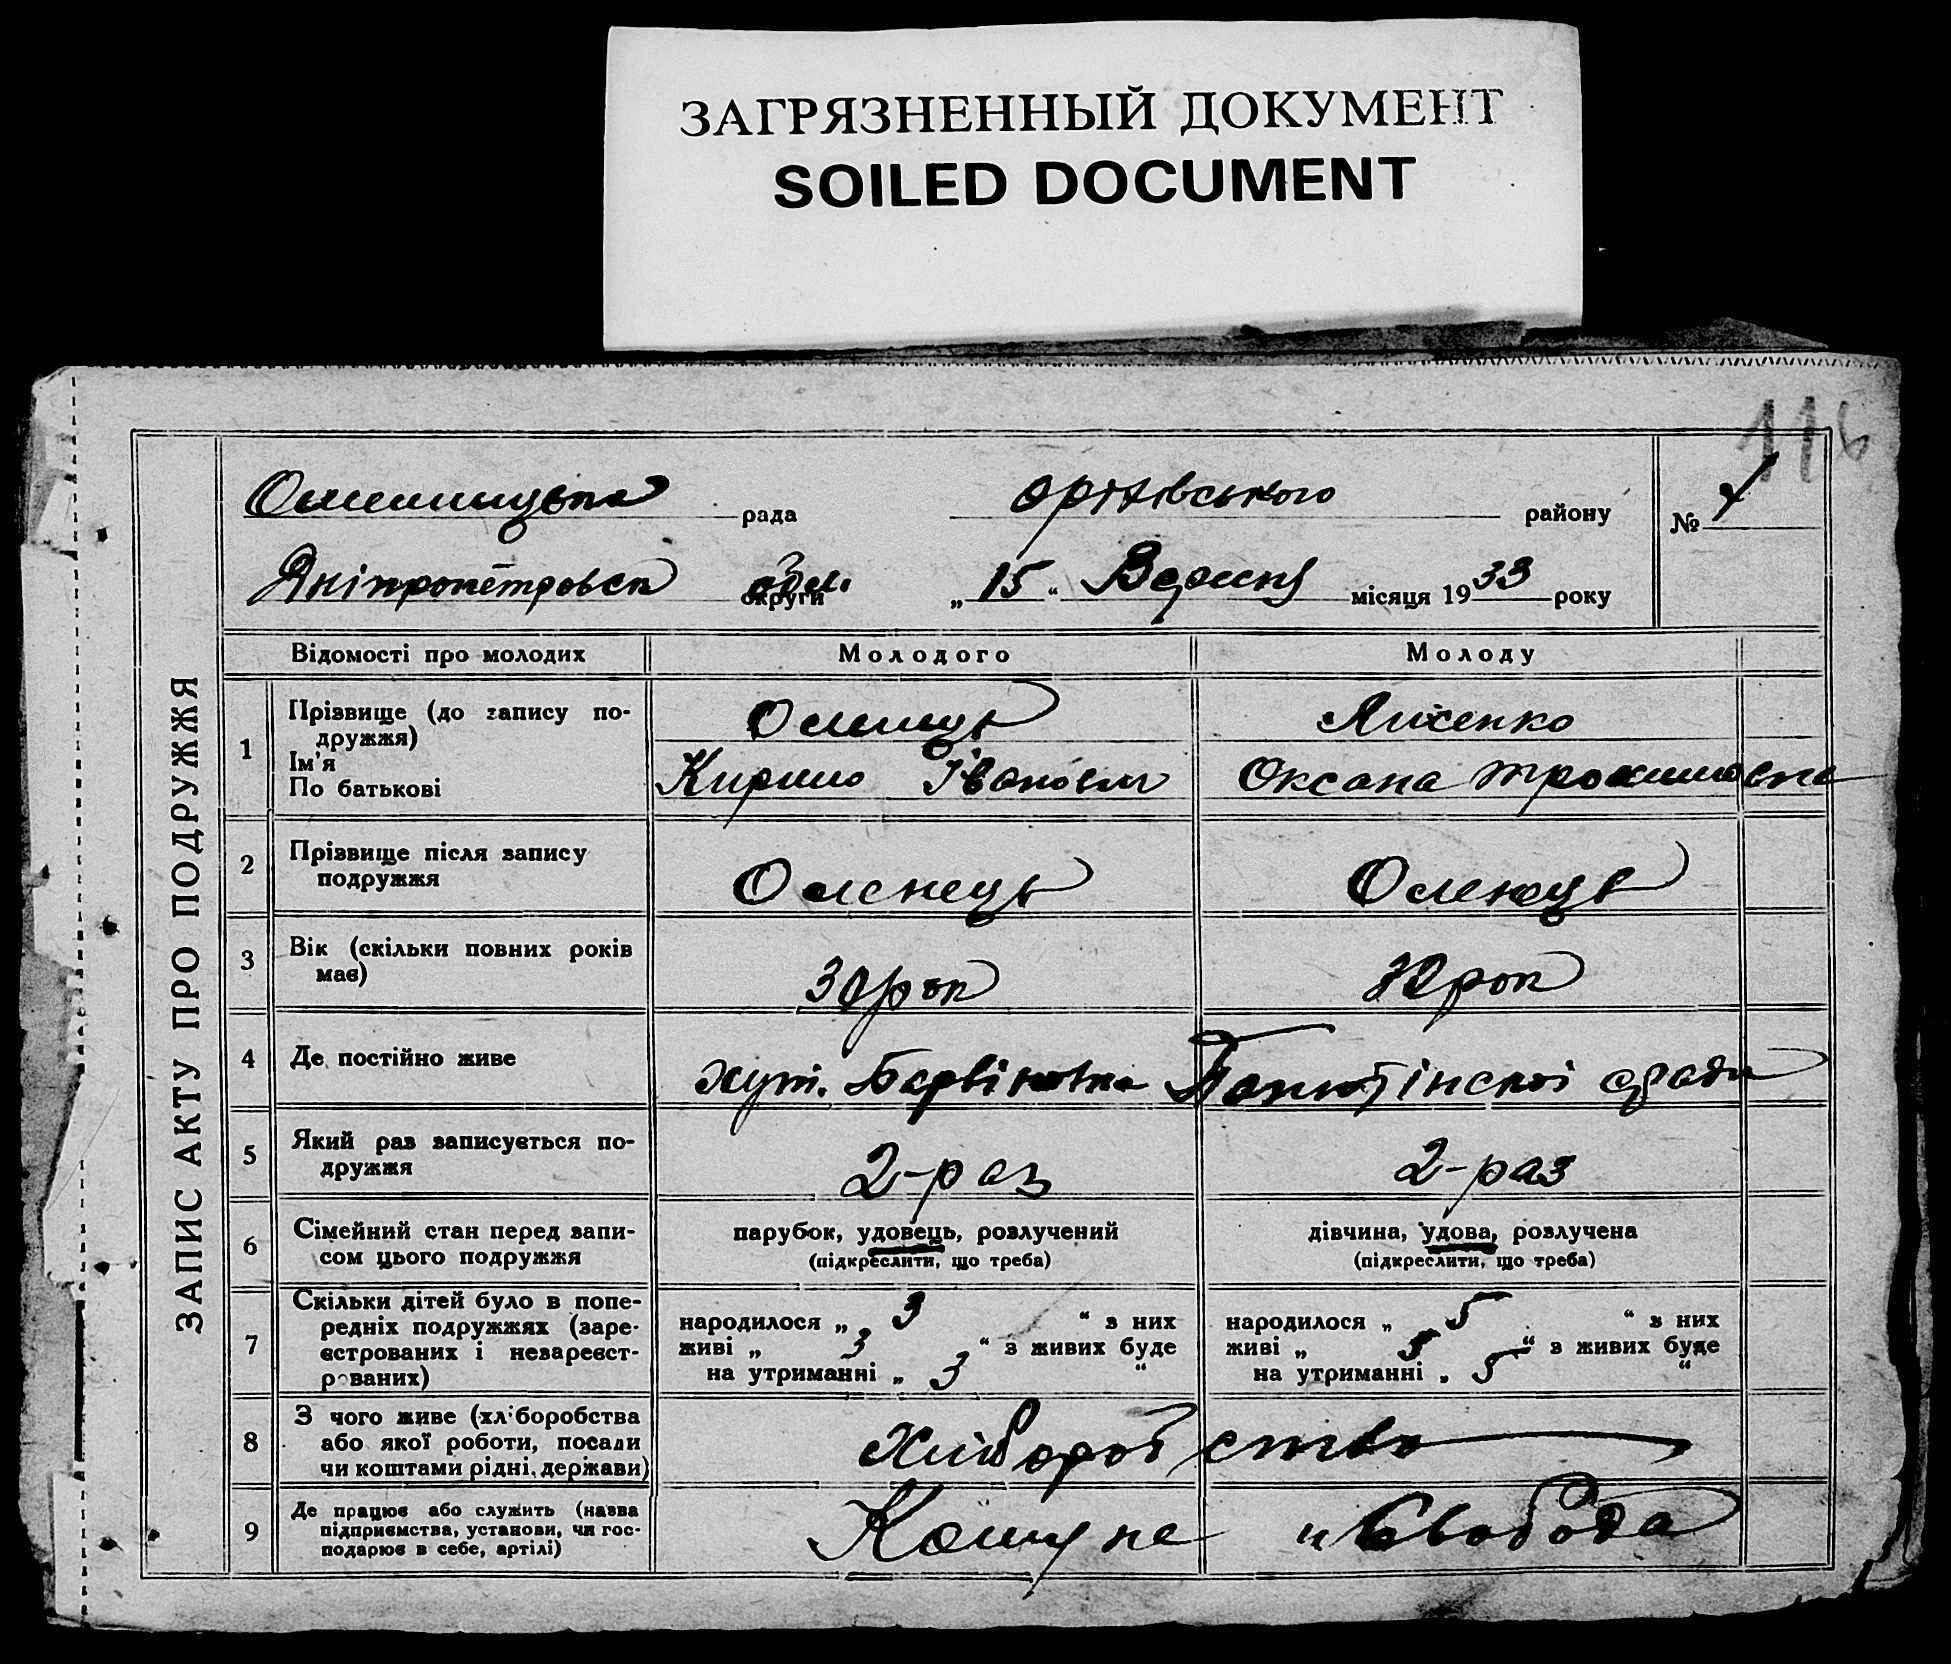 ЗАГРЯЗНЕННЫЙ ДОКУМЕНТ
SOILED DOCUMENT
116
рада Оріхівського району № 1
Дніпропетровськ округи обл. „ 15 “ Вересня місяця 1933 року
ЗАПИС АКТУ ПРО ПОДРУЖЖЯ
Відомості про молодих Молодого Молоду
1 Прізвище (до запису по-
дружжя)
Ім'я
По батькові
Кирило Іванович
Оксана Трохимовна
2 Прізвище після запису
подружжя
Оленець Оленець
3 Вік (скільки повних років
має)
30 рок 30 рок
4 Де постійно живе
хут. Барвіновка ради
5 Який раз записується по-
дружжя
2-раз 2-раз
6 Сімейний стан перед запи-
сом цього подружжя
парубок, удовець, розлучений
(підкреслити, що треба)
дівчина, удова, розлучена
(підкреслити, що треба)
7 Скільки дітей було в попе-
редніх подружжях (заре-
єстрованих і незареєст-
рованих)
народилося „ 3 “ з них
живі „ 3 “ з живих буде
на утриманні „ 3 “
народилося „ 5 “ з них
живі „ 5 “ з живих буде
на утриманні „ 5 “
8 З чого живе (хліборобства
або якої роботи, посади
чи коштами рідні, держави)
Хліборобство
9 Де працює або служить (назва
підприємства, установи, чи гос-
подарює в себе, артілі)
Комуна „Свобода